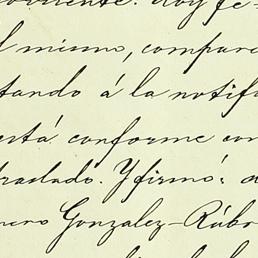 corriente. doy fe-
l mismo, compare
tando á la notifi
está conforme con
traslado. Y firmó: d
nero Gonzalez-Rúbri